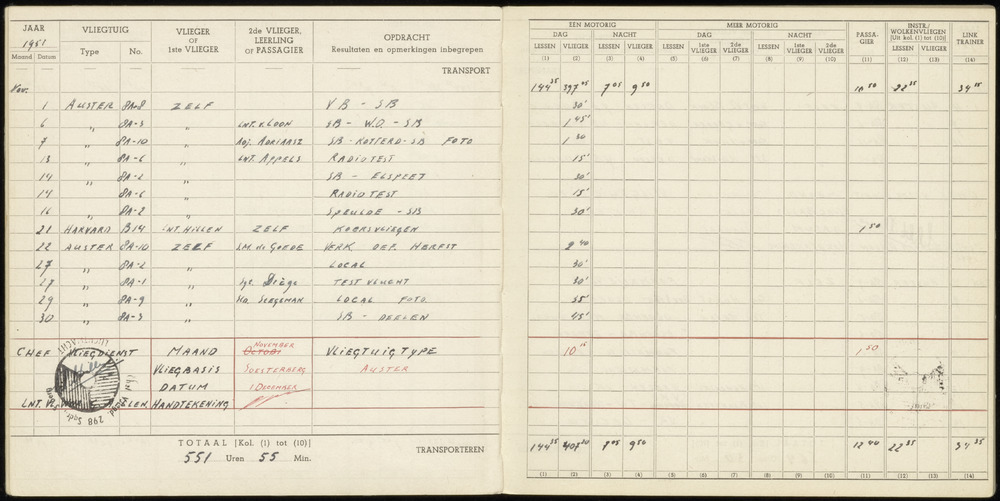 JAAR VLIEGTUIG VLIEGER OF 1ste VLIEGER 2de VLIEGER, LEERLING or PASSAGIER OPDRACHT Resultaten en opmerkingen inbegrepen
1951 Type No.
Maand Datum
TRANSPORT
Nov.
1 AUSTER 8A-8 ZELF VB - SB
6 " 8A-3 " LNT. v. LOON SB - W.O. - SB
7 " 8A-10 " Adj. ADRIAASZ SB - ROTTERD - SB FOTO
13 " 8A-6 " LNT. APPELS RADIOTEST
14 " 8A-2 " SB - ELSPEET
14 " 8A-6 " RADIOTEST
16 " 8A-2 " SPEULDE - SB
21 HARVARD B14 LNT HILLEN ZELF KOERSVLIEGEN
22 AUSTER 8A-10 ZELF SM. de GOEDE VERK OEF. HERFST
27 " 8A-2 " LOCAL
27 " 8A-1 " Sgt. TESTVLUCHT
29 " 8A-9 " LOCAL FOTO
30 " 8A-3 " SB - DEELEN
CHEF VLIEGDIENST MAAND OCTOBER NOVEMBER VLIEGTUIGTYPE
VLIEGBASIS SOESTERBERG AUSTER
DATUM 1 DECEMBER
LNT. VL. HANDTEKENING
298
TOTAAL [Kol. (1) tot (10)]
551 Uren 55 Min.
TRANSPORTEREN
EEN MOTORIG MEER MOTORIG PASSAGIER INSTR./WOLKENVLIEGEN [Uit kol. (1) tot (10)] LINK TRAINER
DAG NACHT DAG NACHT
LESSEN VLIEGER LESSEN VLIEGER LESSEN 1ste VLIEGER 2de VLIEGER LESSEN 1ste VLIEGER 2de VLIEGER LESSEN VLIEGER
(1) (2) (3) (4) (5) (6) (7) (8) (9) (10) (11) (12) (13) (14)
144 35 397 05 7 05 9 50 10 50 22 35 34 15
30'
1 45'
1 30
15'
30'
15'
30'
1 50
2 40
30'
30'
35'
45'
10 15 1 50
144 35 407 20 7 05 9 50 12 40 22 35 34 35
(1) (2) (3) (4) (5) (6) (7) (8) (9) (10) (11) (12) (13) (14)